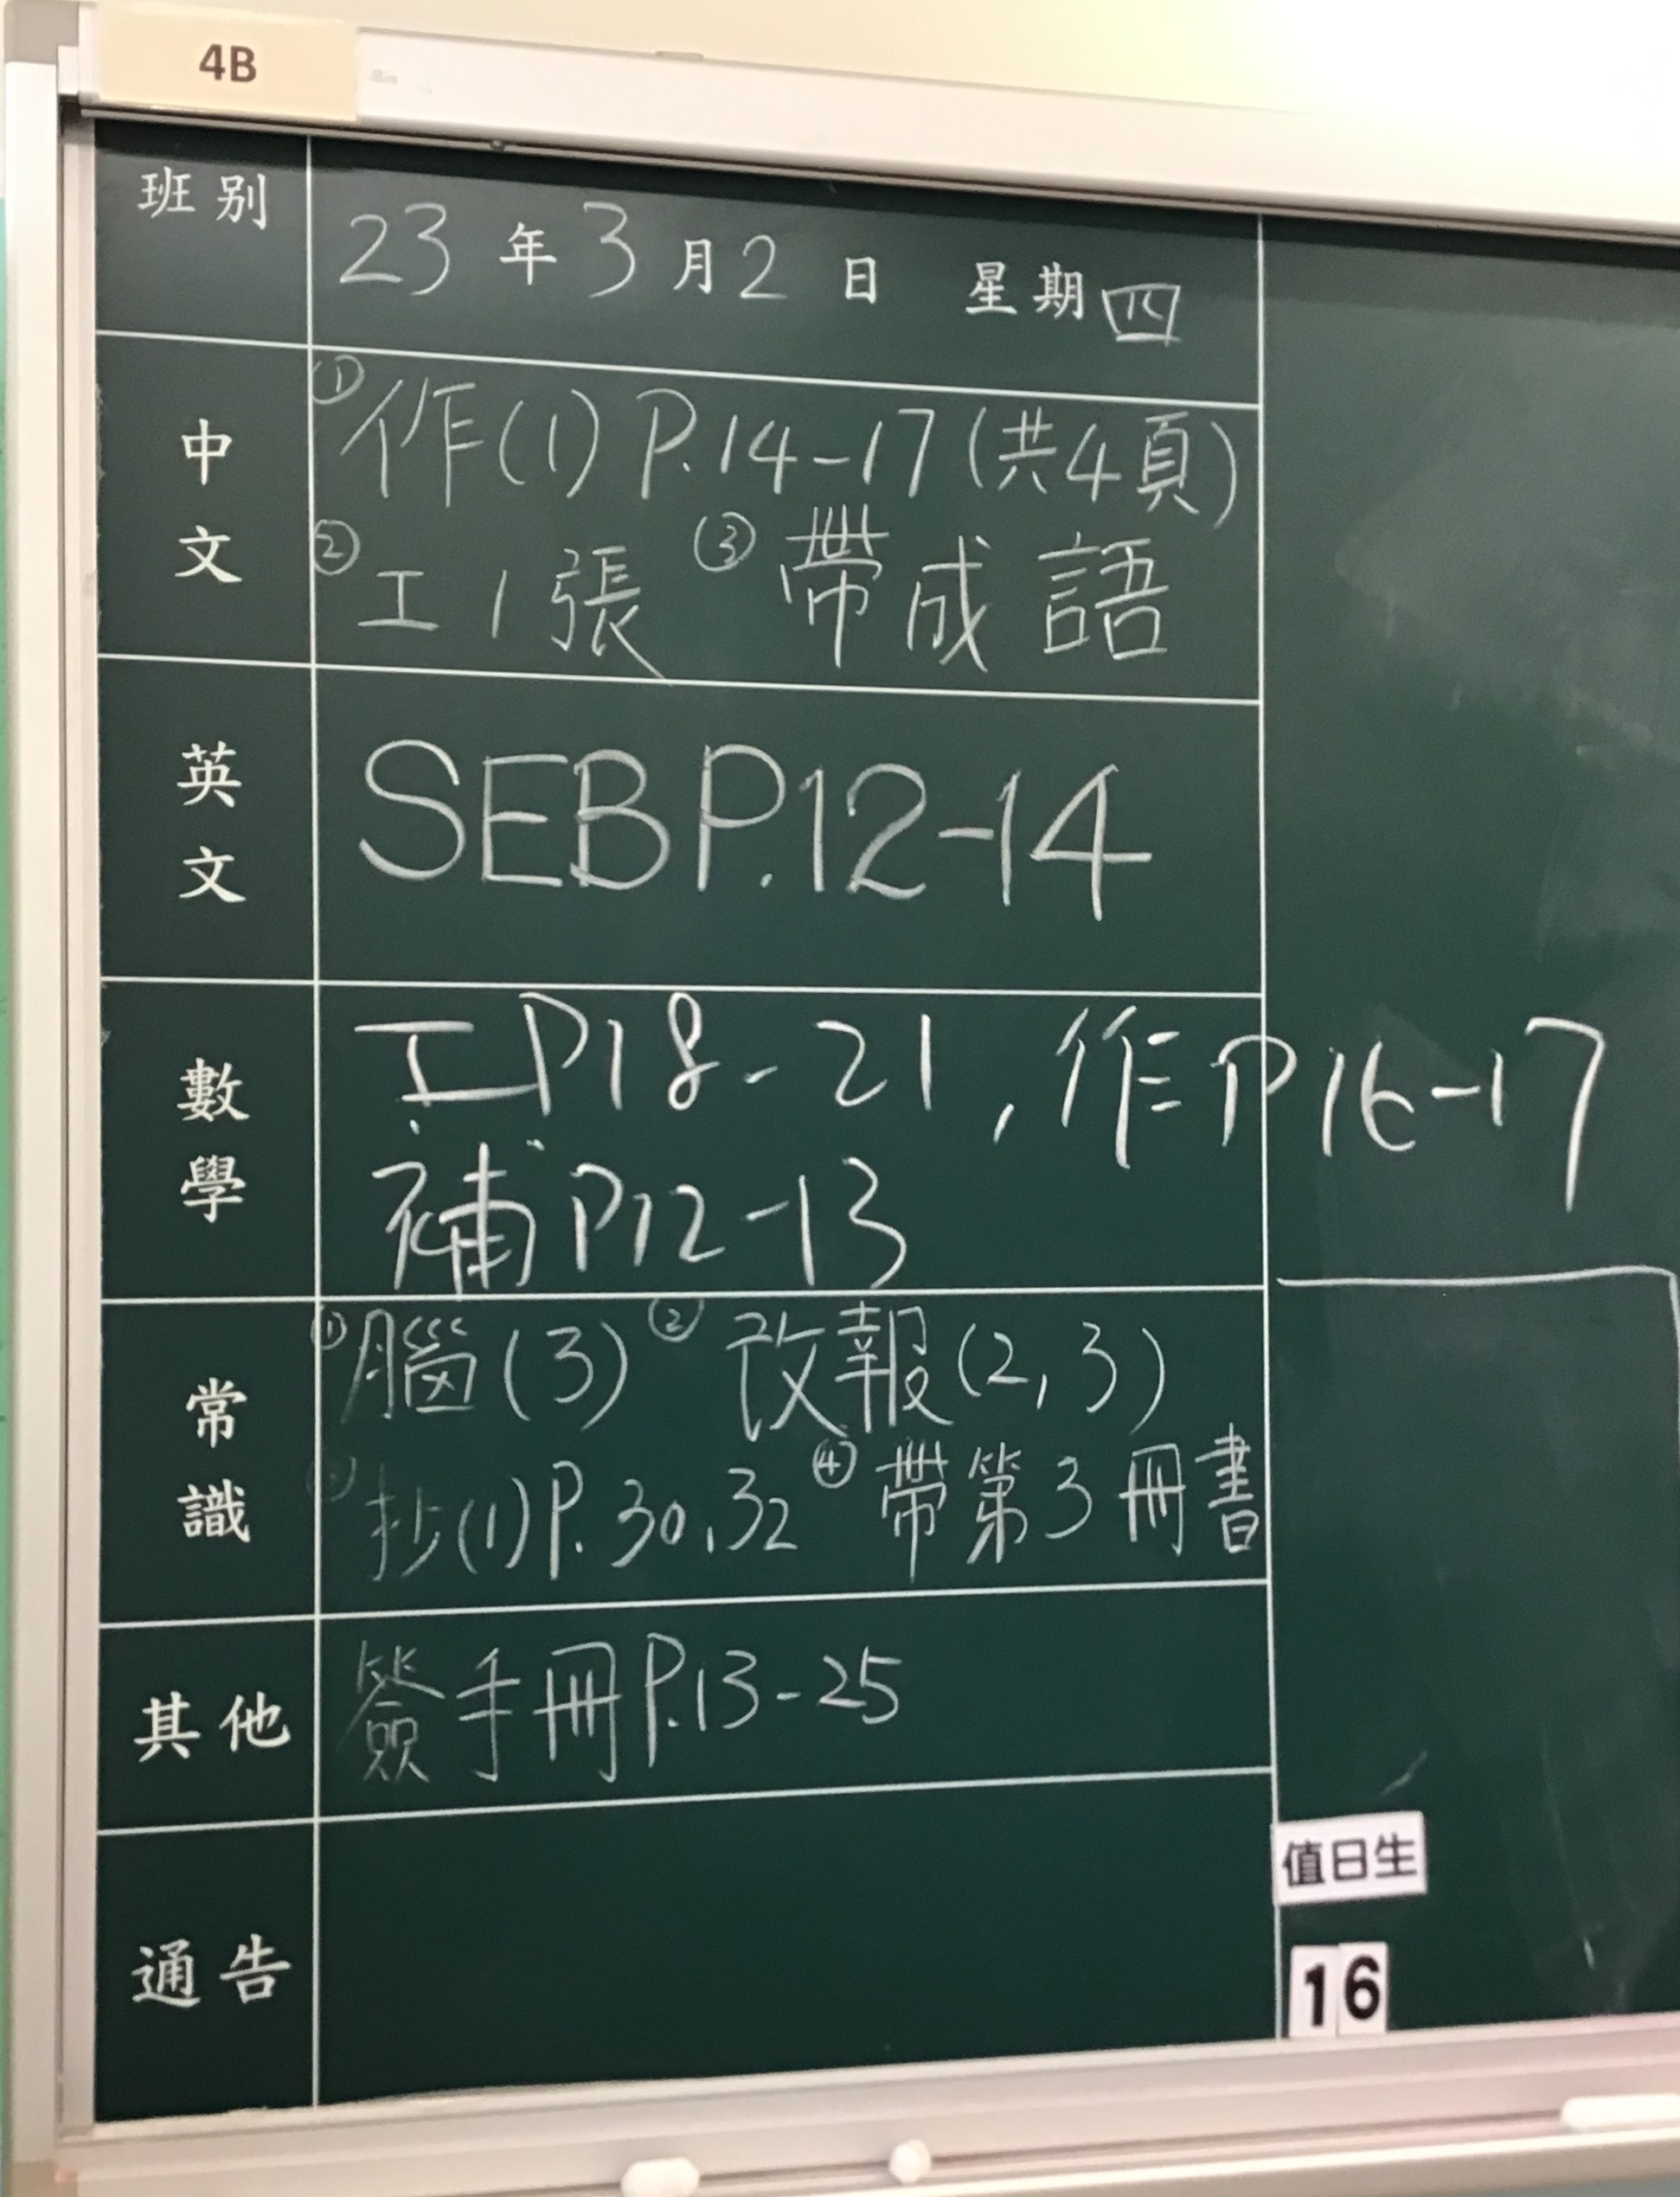 4B
班別
23年3月2日 星期四
中文
①作(1) P.14-17(共4頁)
②工1張 ③帶成語
英文
SEB P.12-14
數學
工P18-21,作P16-17
補P12-13
常識
①腦(3) ②改報(2,3)
③抄(1)P.30,32 ④帶第3冊書
其他
簽手冊P.13-25
通告
值日生
16